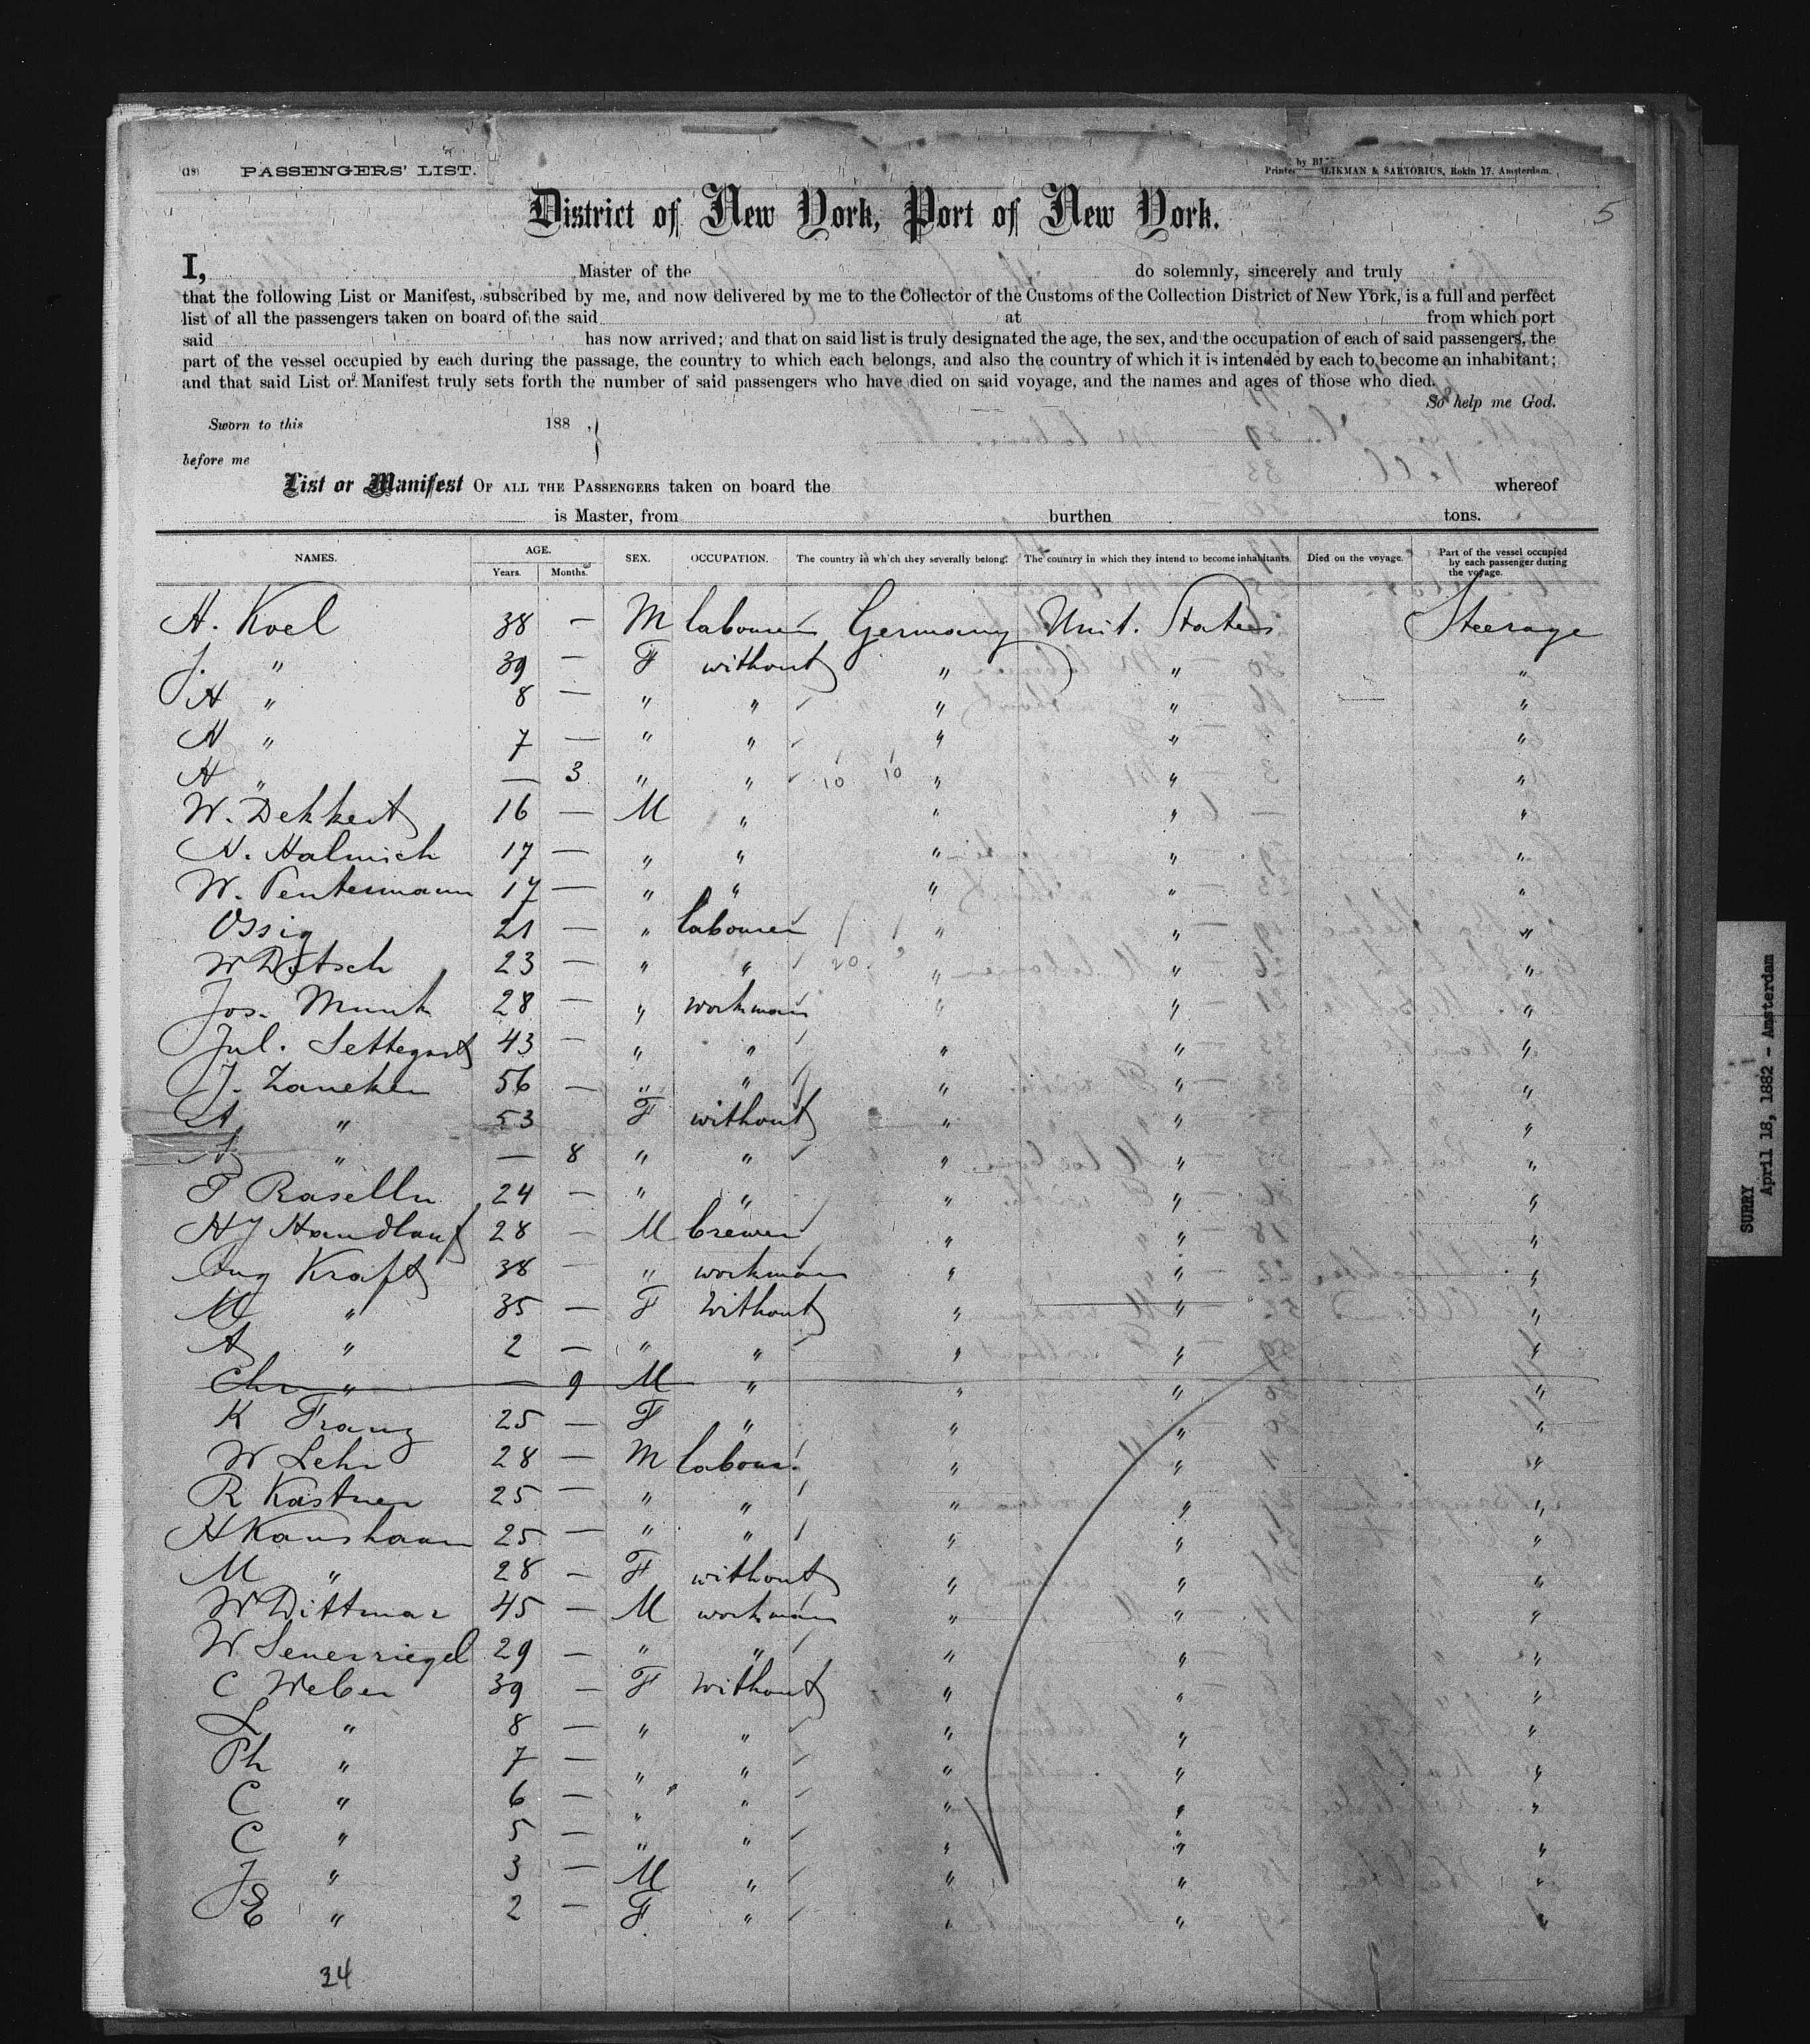 (18) PASSENGERS' LIST.
Printed by BLIKMAN & SARTORIUS, Rokin 17. Amsterdam.
5
District of New York, Port of New York.
I, Master of the do solemnly, sincerely and truly
that the following List or Manifest, subscribed by me, and now delivered by me to the Collector of the Customs of the Collection District of New York, is a full and perfect
list of all the passengers taken on board of the said at from which port
said has now arrived; and that on said list is truly designated the age, the sex, and the occupation of each of said passengers, the
part of the vessel occupied by each during the passage, the country to which each belongs, and also the country of which it is intended by each to become an inhabitant;
and that said List or Manifest truly sets forth the number of said passengers who have died on said voyage, and the names and ages of those who died.
So help me God.
Sworn to this 188 ,
before me
List or Manifest OF ALL THE PASSENGERS taken on board the whereof
is Master, from burthen tons.
NAMES. AGE. Years. Months. SEX. OCCUPATION. The country in which they severally belong. The country in which they intend to become inhabitants. Died on the voyage. Part of the vessel occupied by each passenger during the voyage.
H. Koel 38 — M labourer Germany Unit. States Steerage
J. " 39 — F without " " "
A " 8 — " " " " "
N " 7 — " " " " "
H " — 3 " " 10 10 " " "
W. Dekkert 16 — M " " " "
N. Halmich 17 — " " " " "
W. Pentermann 17 — " " " " "
Ossig 21 — " labourer " " "
W Dotsch 23 — " " 20 " " "
Jos. Munk 28 — " workman " " "
Jul. Settegast 43 — " " " " "
J. Zaneken 56 — " " " " "
A " 53 F without " " "
" — 8 " " " " "
P Raselln 24 — " " " " "
HJ Handlauf 28 — M brewer " " "
Aug Kraft 38 — " workman " " "
M " 35 — F without " " "
A " 2 — " " " " "
Chr " — 9 M " " " "
K Franz 25 — F " " " "
W Lehr 28 — M labour. " " "
R Kastner 25 — " " " " "
H Kaushaar 25 — " " " " "
M " 28 — F without " " "
W Dittmar 45 — M workman " " "
W Seuerriegel 29 — " " " " "
C Weber 39 — F without " " "
L " 8 — " " " " "
Ph " 7 — " " " " "
C " 6 — " " " " "
C " 5 — " " " " "
J " 3 — M " " " "
E " 2 — F " " " "
34
SURRY
April 18, 1882 - Amsterdam